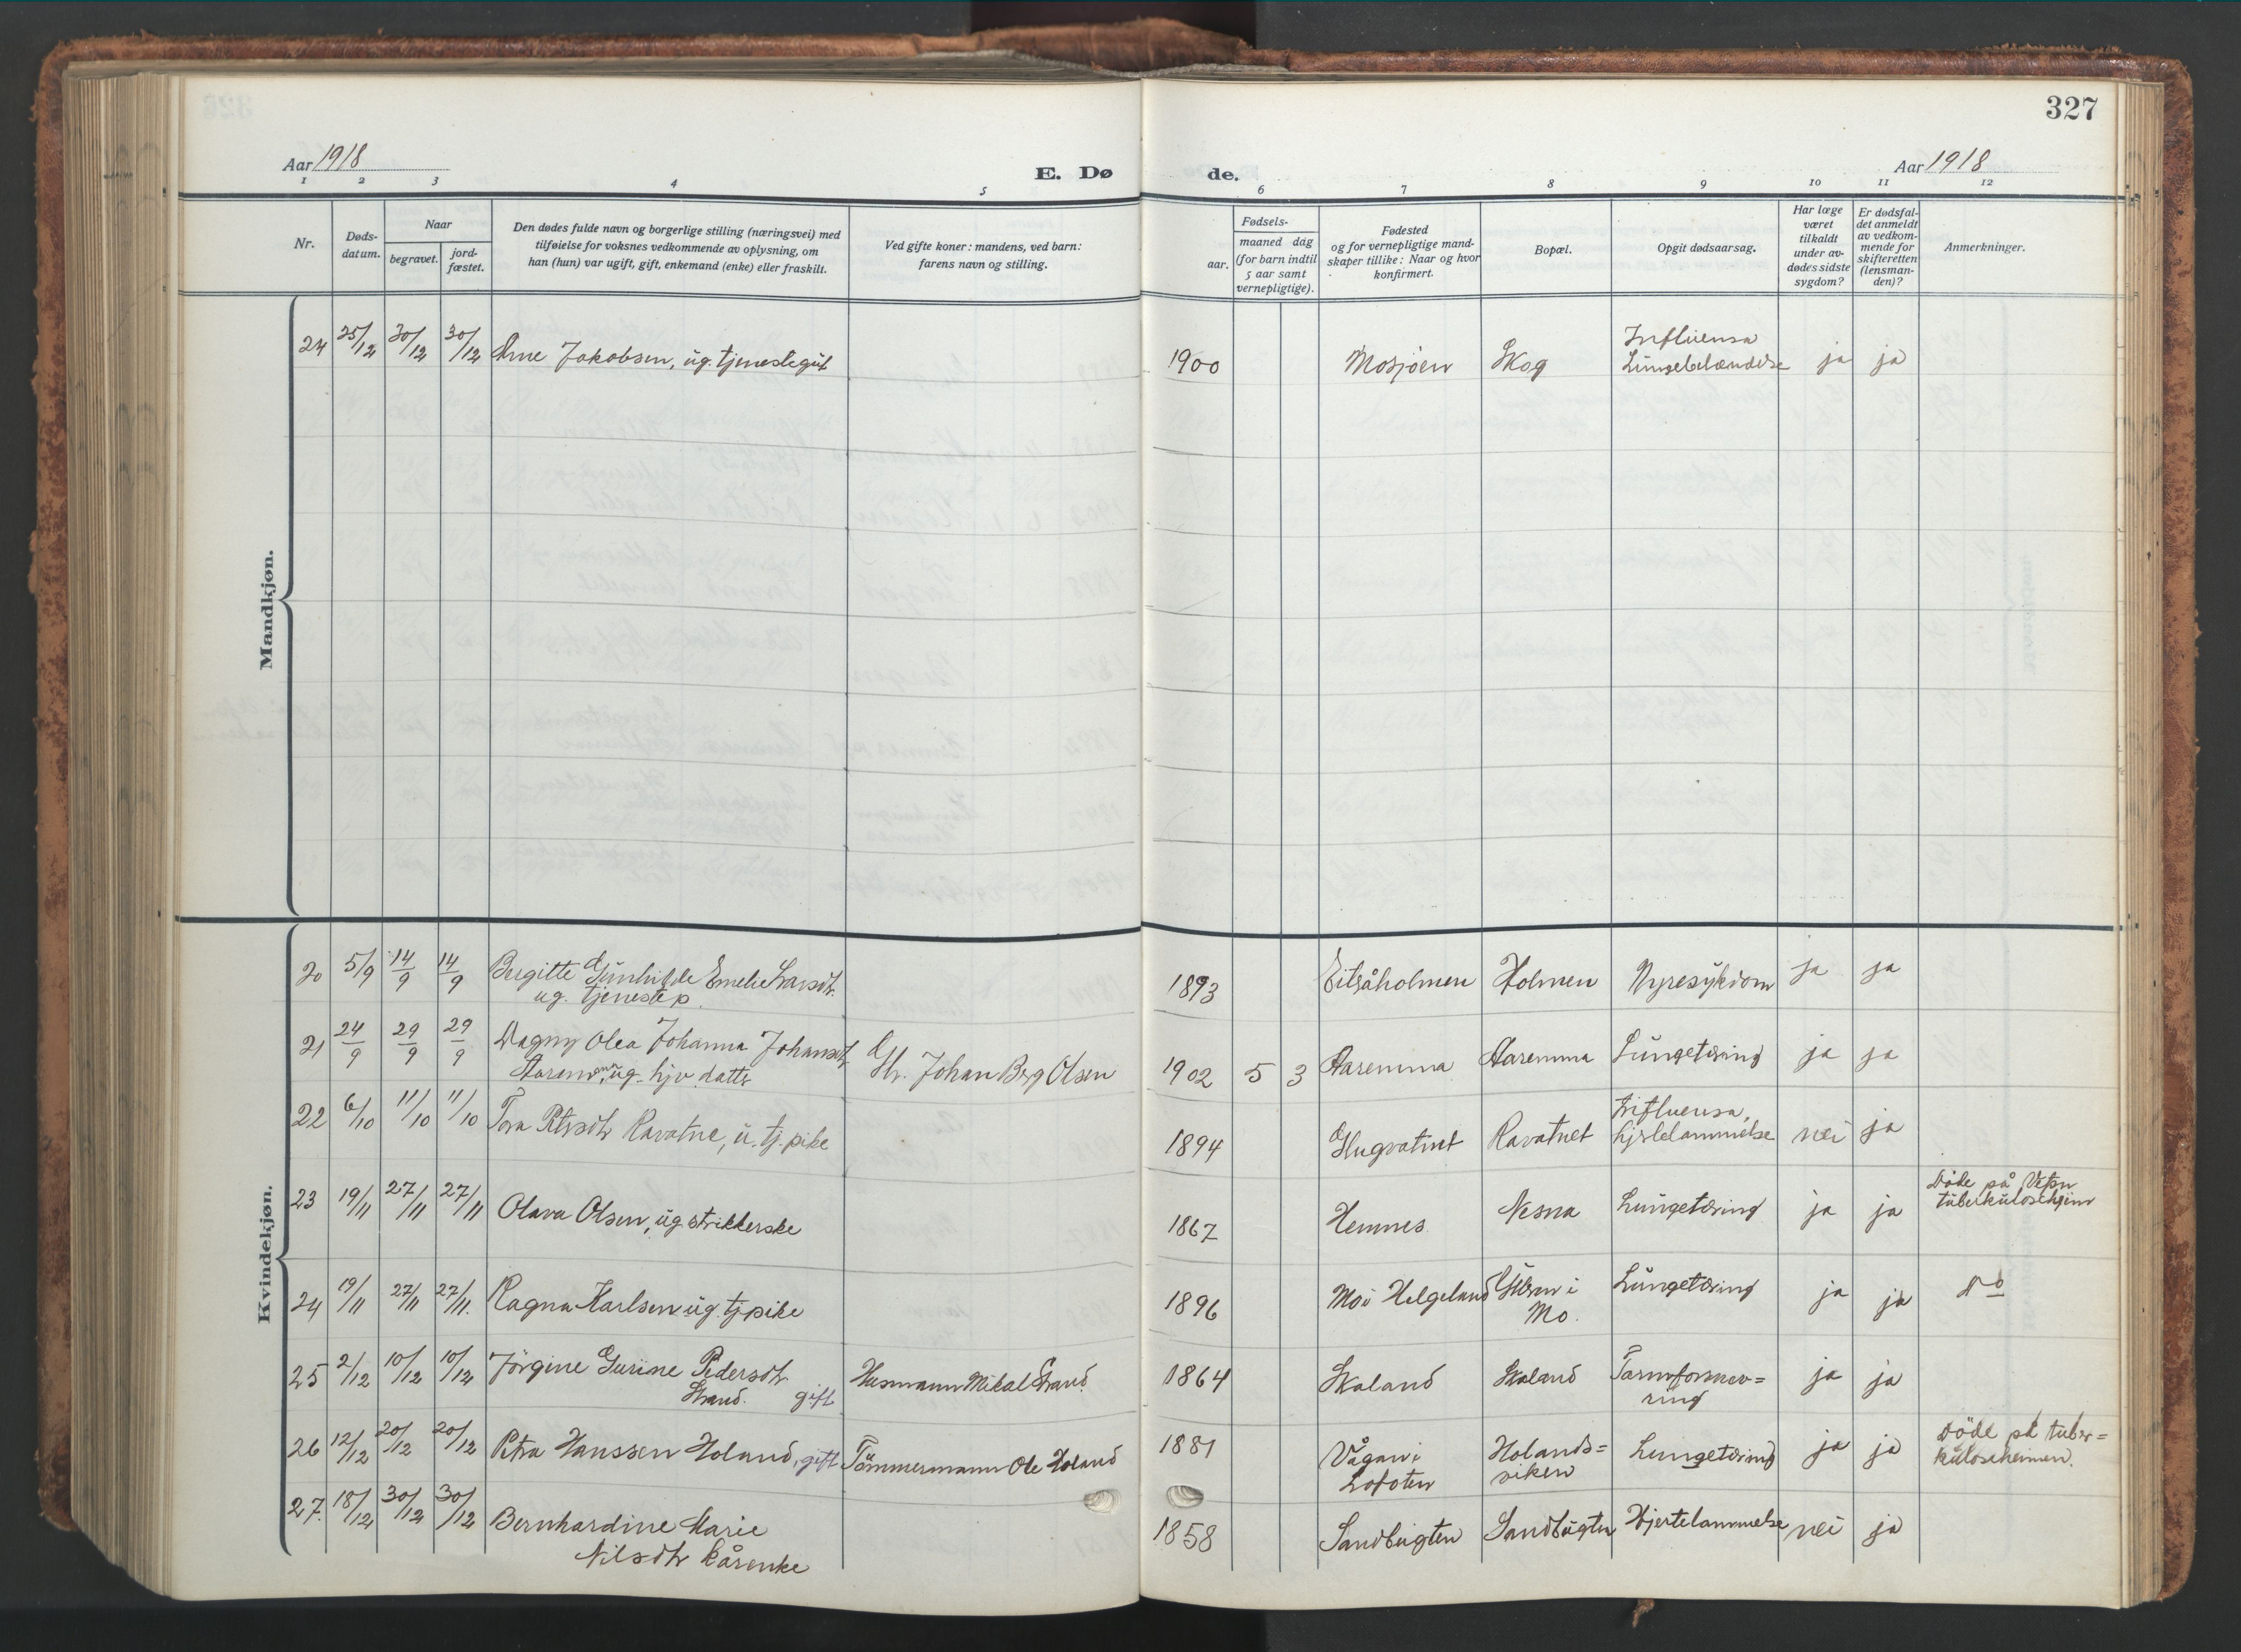 327
Aar 1918
E. Dø
de.
Aar 1918
1 2 3 4 5 6 7 8 9 10 11 12
Nr.
Døds-
datum.
Naar
begravet.
jord-
fæstet.
Den dødes fulde navn og borgerlige stilling (næringsvei) med
tilføielse for voksnes vedkommende av oplysning, om
han (hun) var ugift, gift, enkemand (enke) eller fraskilt.
Ved gifte koner: mandens, ved barn:
farens navn og stilling.
Fødsels-
aar.
maaned dag
(for barn indtil
5 aar samt
vernepligtige).
Fødested
og for vernepligtige mand-
skaper tillike: Naar og hvor
konfirmert.
Bopæl.
Opgit dødsaarsag.
Har læge
været
tilkaldt
under av-
dødes sidste
sygdom?
Er dødsfal-
det anmeldt
av vedkom-
mende for
skifteretten
(lensman-
den)?
Anmerkninger.
Mandkjøn.
24 25/12 30/12 30/12 Arne Jakobsen, ug. tjenestegut 1900 Mosjøen Skog Influensa
Lungebetændelse ja ja
Kvindekjøn.
20 5/9 14/9 14/9 Bergitte Gunhilde Emelie Larsdtr.
ug. tjenestep. 1893 Holmen Nyresykdom ja ja
21 24/9 29/9 29/9 Dagny Olea Johanna Johansdtr
ug. hjv. datter Johan Berg Olsen 1902 5 3 Aaremma Aaremma Lungetæring ja ja
22 6/10 11/10 11/10 Tora Petersdtr Ravatne, u. tj. pike 1894 Ravatnet Influensa,
hjertelammelse nei ja
23 19/11 27/11 27/11 Olava Olsen, ug strikkerske 1867 Hemnes Nesna Lungetæring ja ja Döde på Vefsn
tuberkuloseheim
24 19/11 27/11 27/11. Ragna Karlsen ug. tj pike 1896 Mo i Helgeland i
Mo. Lungetæring ja ja do
25 2/12 10/12 10/12 Jörgine Gurine Pedersdtr
Strand. gift Husmann Mikal Strand. 1864 Skaland Skaland Tarmforsnev=
ring ja ja
26 12/12 20/12 20/12 Petra Hanssen Holand, gift Tömmermann Ole Holand 1881 Vågan i
Lofoten Holands=
viken Lungetæring ja ja Döde på tuber=
kuloseheimen.
27. 18/12 30/12 30/12 Bernhardine Marie
Nilsdtr kårenke 1858 Sandbugten Sandbugten Hjertelammelse nei ja